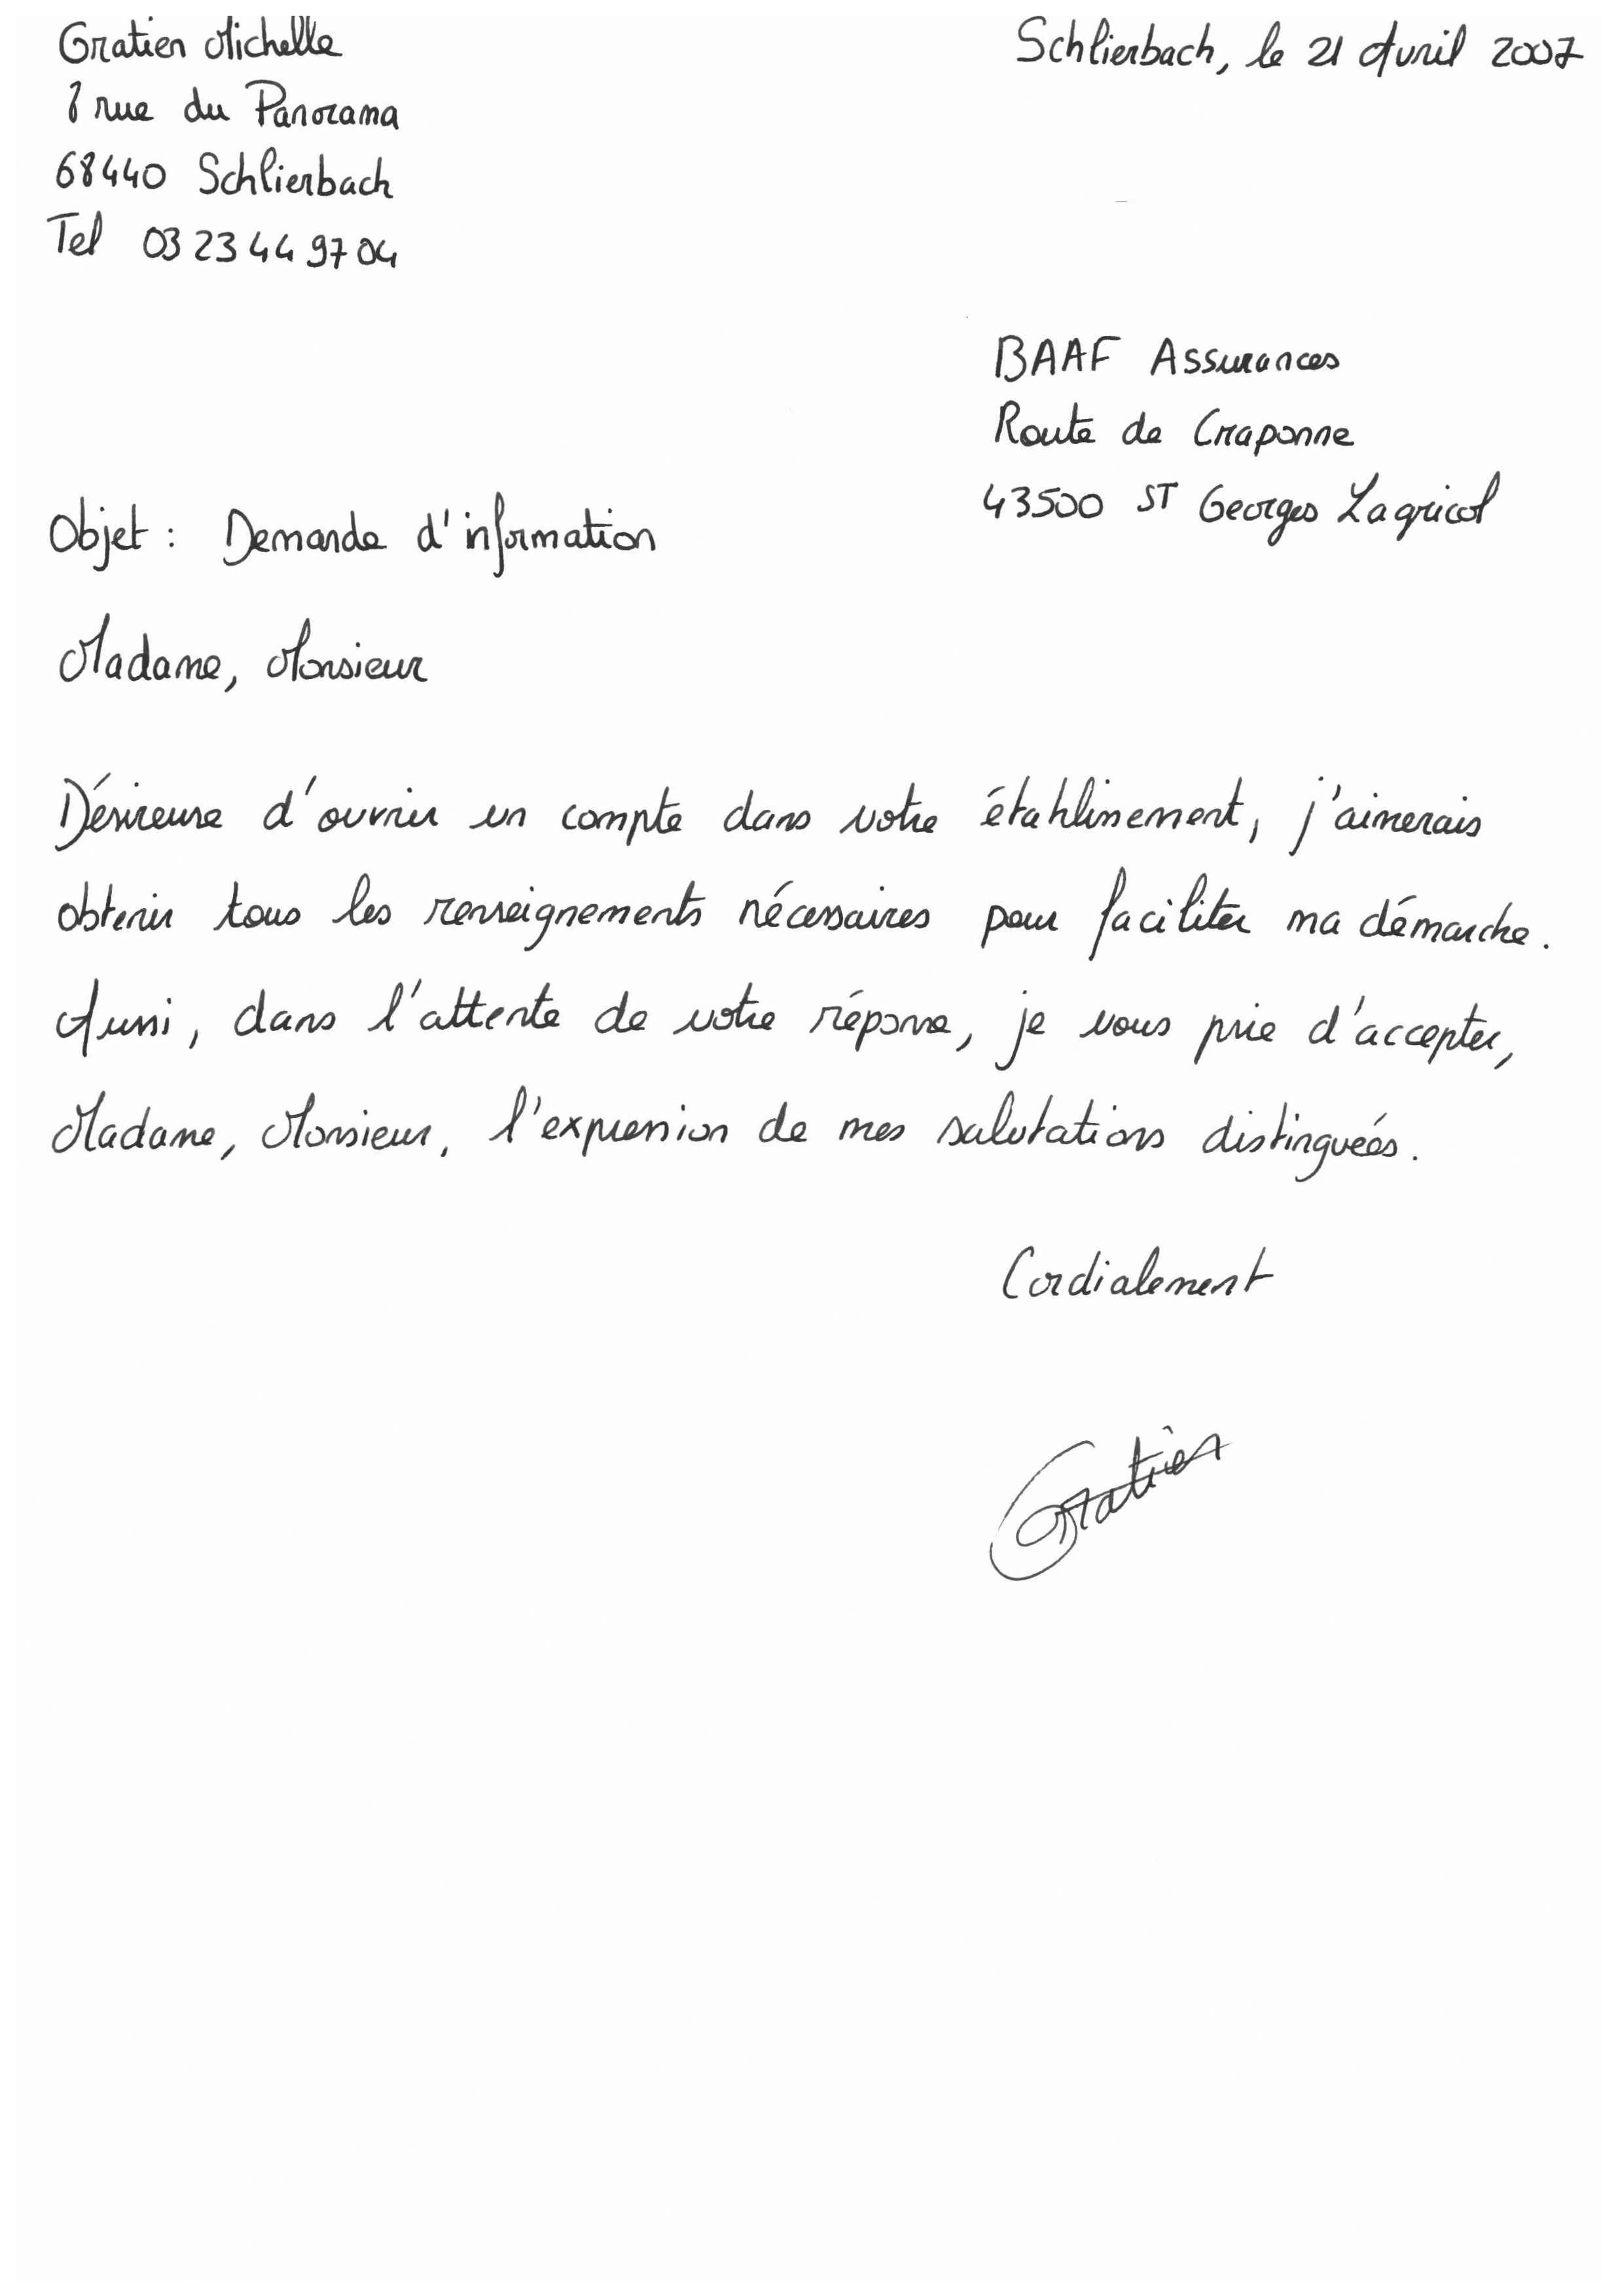 Gratien Michelle
8 rue du Panorama
68440 Schlierbach
Tel 03 23 44 97 04
Schlierbach, le 21 Avril 2007
BAAF Assurances
Route de Craponne
43500 ST Georges Lagricol
Objet : Demande d'information
Madame, Monsieur
Désireuse d'ouvrir un compte dans votre établissement, j'aimerais
obtenir tous les renseignements nécessaires pour faciliter ma démarche.
Aussi, dans l'attente de votre réponse, je vous prie d'accepter,
Madame, Monsieur, l'expression de mes salutations distinguées.
Cordialement
Gratien